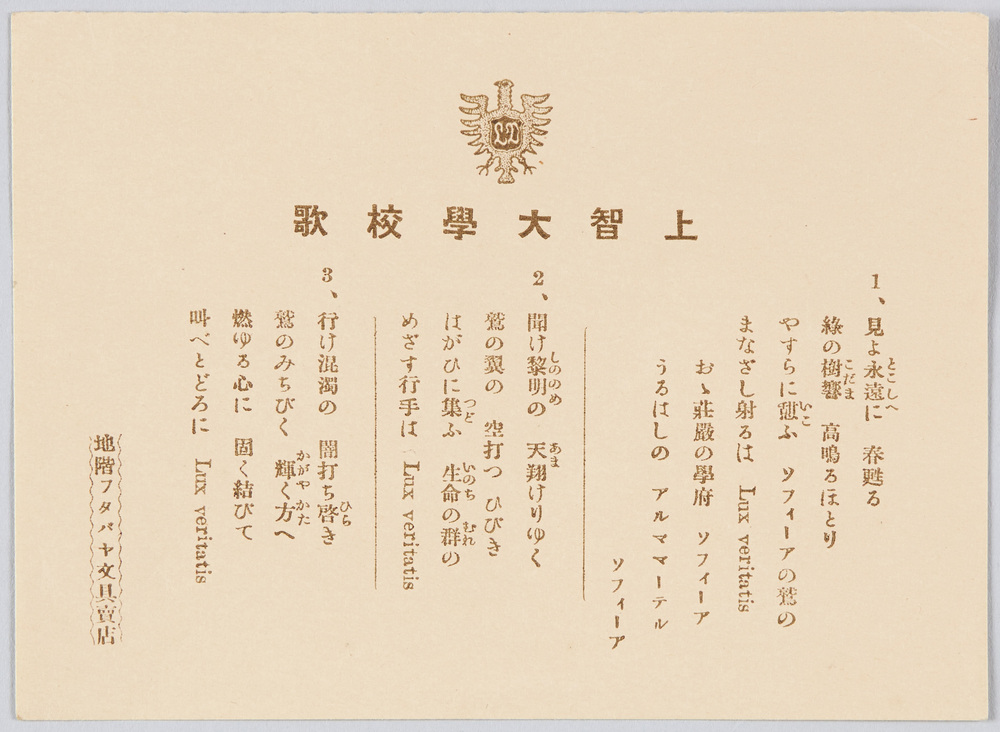 上智大學校歌
1、見よ永遠に　春甦る
綠の樹響　高鳴るほとり
やすらに憩ふ　ソフィーアの鷲の
まなざし射るは　Lux veritatis
おゝ莊嚴の學府　ソフィーア
うるはしの　アルママーテル
ソフィーア
2、聞け黎明の　天翔けりゆく
鷲の翼の　空打つ　ひびき
はがひに集ふ　生命の群の
めざす行手は　Lux veritatis
3、行け混濁の　闇打ち啓き
鷲のみちびく　輝く方へ
燃ゆる心に　固く結びて
叫べとどろに　Lux veritatis
地階フタバヤ文具賣店